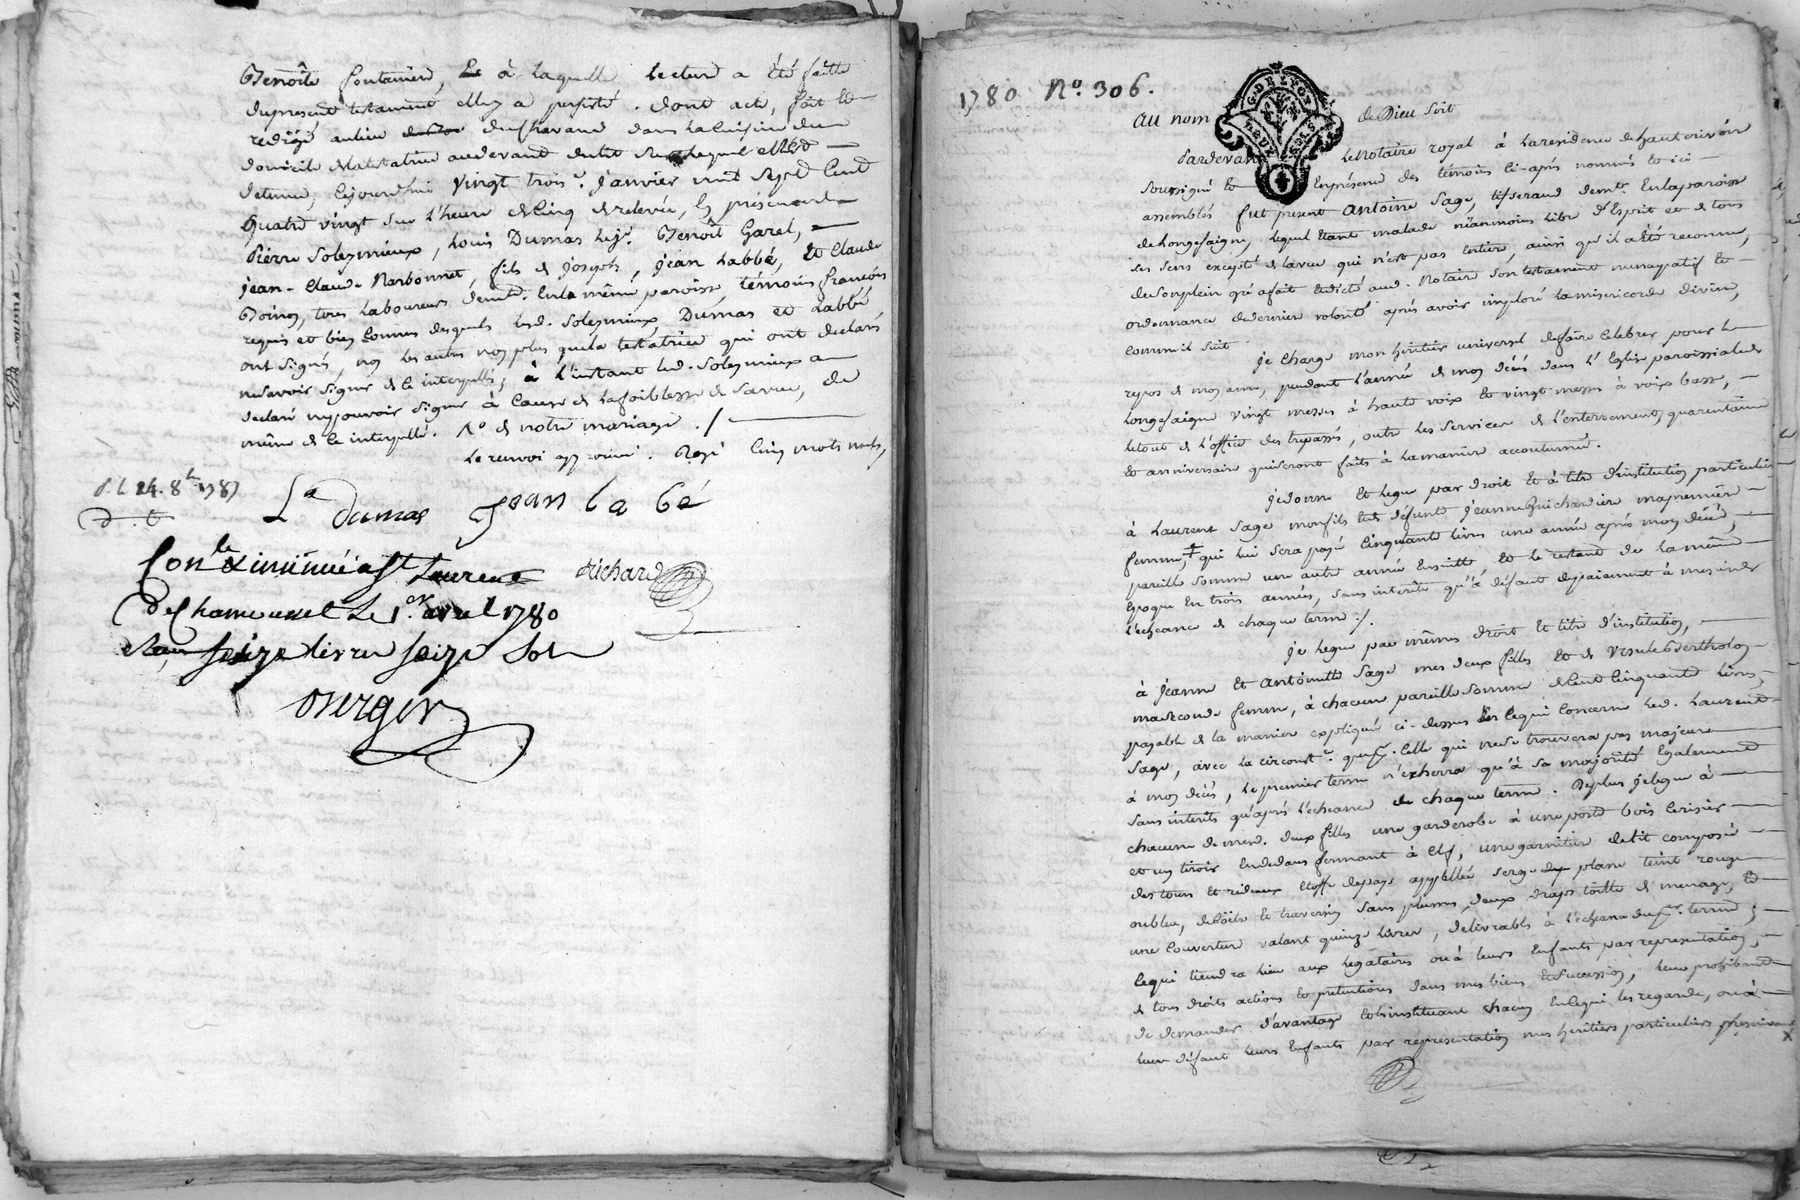 Benoîte fontanierd, & à laquelle lecture a été faitte
du present testament elle y a persisté. dont acte, fait et
redigé au lieu du Chavand dans la Cuisine du
domicile de la testatrice au devant du lit sur lequel elle est
detenue, cejourdhui vingt trois.e janvier mil sept Cent
quatre vingt sur l'heure de Cinq de relevée, En présence de
Pierre Solezmieux, Louis Dumas le j.e Benoît Garel,
jean-Claude Narbonnet, fils de joseph, jean Labbé, et Claude
tous Laboureurs dem.t En la même paroisse, témoins français
requis et bien Connus desquels lesd. Solezmieux, Dumas et Labbé
ont signés, non les autres non plus que la testatrice qui ont declaré
ne savoir signer de ce interpellés, à l'instant led. Solezmieux a
declaré ne pouvoir signer à Cause de la foiblesse de sa vue, de
même de ce interpellé. N.o de notre mariage. /
Le renvoi approuvé. Rayé Cinq mots nuls,
24. 8.bre 1787
La dumas jean la bé
Con.lé & insinué a St Laurent
de Chamousset Le 1.er avril 1780
Reçu seize livres seize sols
Richard
1780 N.o 306.
G. DE LYON
DEUX SOLS
au nom de Dieu soit
Pardevant le Notaire royal à la residence de hauterivoire
soussigné et En présence des témoins ci-après nommés et ici
assemblés fut present Antoine Sage, tisserand dem.t En la paroisse
de Longesaigne, lequel étant malade néanmoins libre d'Esprit et de tous
ses sens excepté de la vue qui n'est pas Entiere, ainsi qu'il a été reconnu,
de son plein gré a fait et dicté aud. Notaire son testament nuncupatif et
ordonnance de derniere volonté après avoir imploré la misericorde divine,
comme il suit
je Charge mon heritier universel de faire Celebrer pour le
repos de mon ame, pendant l'année de mon décès dans l'Eglise paroissiale de
Longesaigne vingt messes à haute voix et vingt messes à voix basse,
le tout de l'office des trepassés, outre les services de l'enterrement, quarantaine
et anniversaire qui seront faits à la maniere accoutumée.
je donne et legue par droit et à titre d'institution particuliere
à Laurent Sage mon fils et de defunte jeanne Guichardiere ma premiere
femme, qui lui sera payé Cinquante livres une année après mon décès,
pareille somme une autre année Ensuitte, et le restant de la même
Epoque En trois années, sans interêts qu'à défaut de paiement à mesure de
l'échéance de chaque terme /.
je legue par mêmes droit et titre d'institution,
à jeanne et Antoinette Sage mes deux filles et de Ursule Bertholon
ma seconde femme, à chacune pareille somme de Cent Cinquante livres,
payable de la maniere expliquée ci-dessus En ce qui Concerne led. Laurent
Sage, avec la circonst.e que Celle qui ne se trouvera pas majeure
à mon décès, le premier terme n'echerra qu'à sa majorité Egalement
sans interêts qu'après l'échéance de chaque terme. De plus je legue à
chacune de mesd. deux filles une garderobe à une porte bois Cerisier
et un tiroir En dedans fermant à clef, une garniture de lit composée
des tours et rideaux Etoffe du pays appellée serge plane teint rouge
ou bleu, de Coëtre et traversin sans plumes, deux draps toille de menage, et
une Couverture valant quinze livres, délivrable à l'échéance du p.r terme;
Ce qui tiendra lieu aux legataires ou à leurs Enfants par representation,
de tous droits actions et prétentions dans mes biens et succession, leur prohibant
de demander d'avantage Les instituant chacun En ce qui les regarde, ou à
leur défaut leurs Enfants par representation mes heritiers particuliers